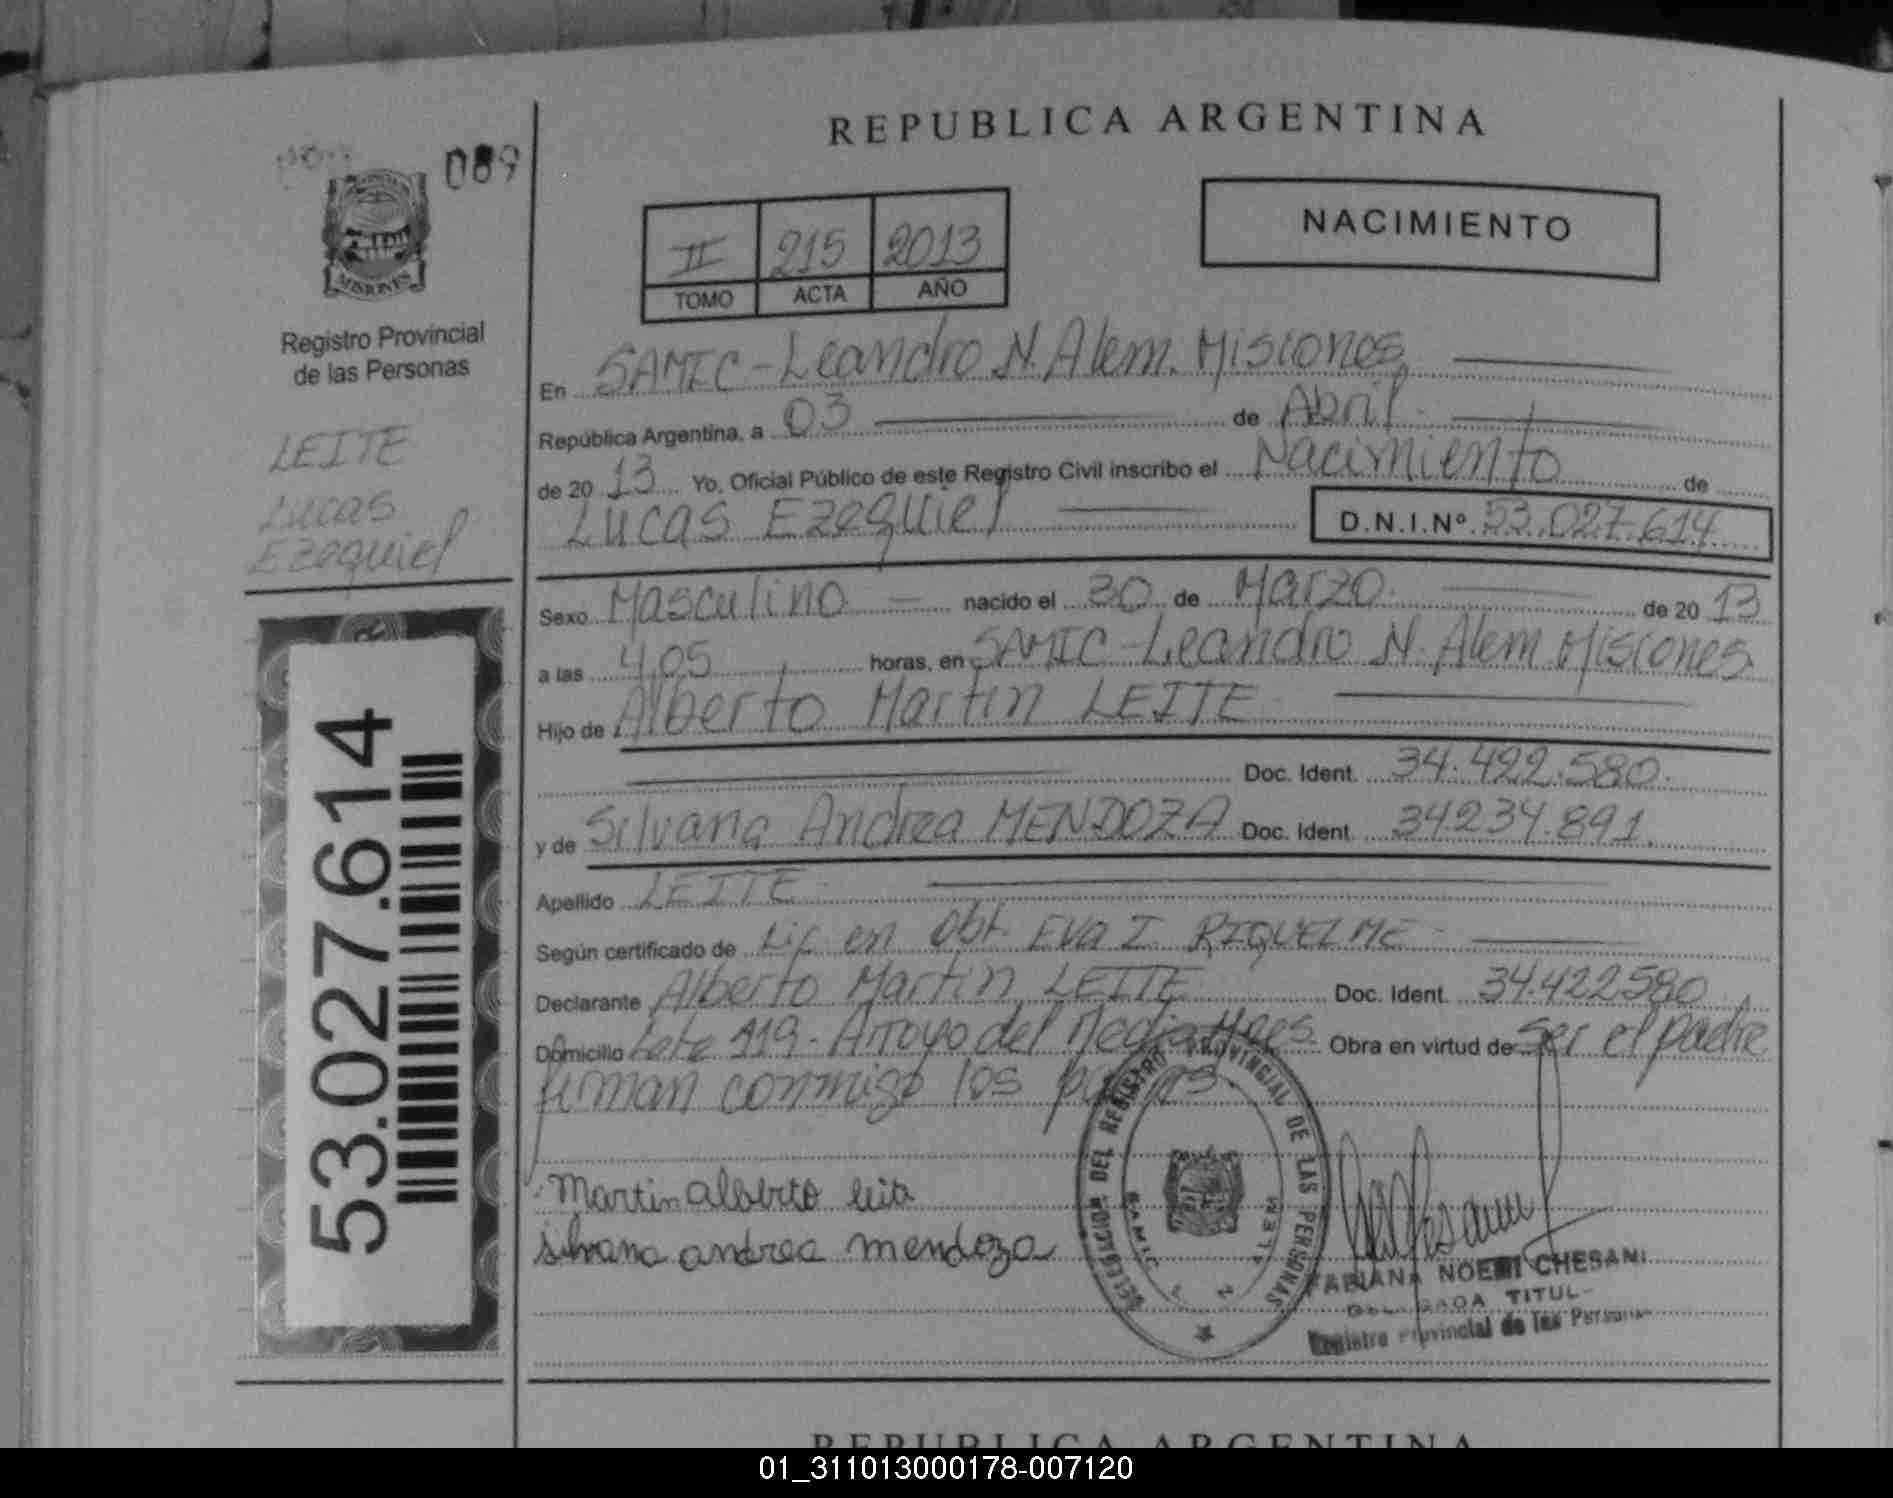 REPUBLICA ARGENTINA
089
MISIONES
Registro Provincial
de las Personas
LEITE
Lucas
Ezequiel
53.027.614
II 215 2013
TOMO ACTA AÑO
NACIMIENTO
En SAMIC-Leandro N. Alem. Misiones
República Argentina, a 03 de Abril
de 20 13 Yo, Oficial Público de este Registro Civil inscribo el Nacimiento de
Lucas Ezequiel D.N.I.Nº 53.027.614
Sexo Masculino nacido el 30 de Marzo de 20 13
a las 4,05 horas, en SAMIC-Leandro N. Alem Misiones
Hijo de Alberto Martin LEITE
Doc. Ident. 34.422.580.
y de Silvana Andrea MENDOZA Doc. Ident. 34234.891.
Apellido LEITE
Según certificado de Lic en Obt. Eva I. RIQUELME
Declarante Alberto Martin LEITE Doc. Ident. 34.422580
Domicilio Lote 119-Arroyo del Medio Obra en virtud de ser el padre
firman conmigo los
Martin alberto leite
silvana andrea mendoza
DELEGACION DEL REGISTRO PROVINCIAL DE LAS PERSONAS
SAMIC L. N. ALEM
FABIANA NOEMI CHESANI
TITUL
Registro Provincial de las Personas
REPUBLICA ARGENTINA
01_311013000178-007120